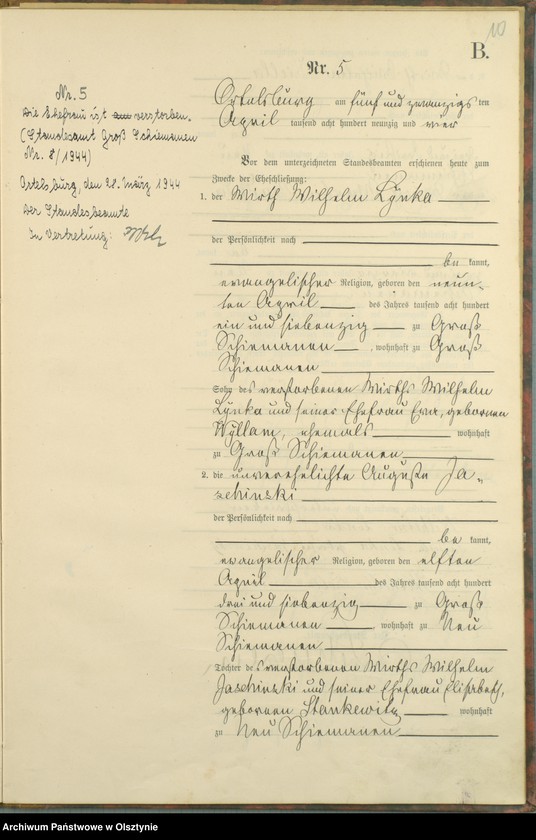 10
B.
Nr. 5
Nr. 5
Die Ehefrau ist verstorben.
(Standesamt Groß Schiemanen
Nr. 8/1944)
Ortelsburg, den 28. März 1944
Der Standesbeamte
In Vertretung:
Ortelsburg am fünf und zwanzigs ten
April tausend acht hundert neunzig und vier
Vor dem unterzeichneten Standesbeamten erschienen heute zum
Zwecke der Eheschließung:
1. der Wirth Wilhelm Lynka
der Persönlichkeit nach
be kannt,
evangelischer Religion, geboren den neun-
ten April des Jahres tausend acht hundert
ein und siebenzig zu Groß
Schiemanen, wohnhaft zu Groß
Schiemanen
Sohn des verstorbenen Wirths Wilhelm
Lynka und seiner Ehefrau Eva, geborenen
Wyllam, ehemals wohnhaft
zu Groß Schiemanen
2. die unverehelichte Auguste Ja-
schinski
der Persönlichkeit nach
be kannt,
evangelischer Religion, geboren den elften
April des Jahres tausend acht hundert
drei und siebenzig zu Groß
Schiemanen, wohnhaft zu Neu
Schiemanen
Tochter des verstorbenen Wirths Wilhelm
Jaschinski und seiner Ehefrau Elisabeth,
geborenen Stankewitz wohnhaft
zu Neu Schiemanen
Archiwum Państwowe w Olsztynie